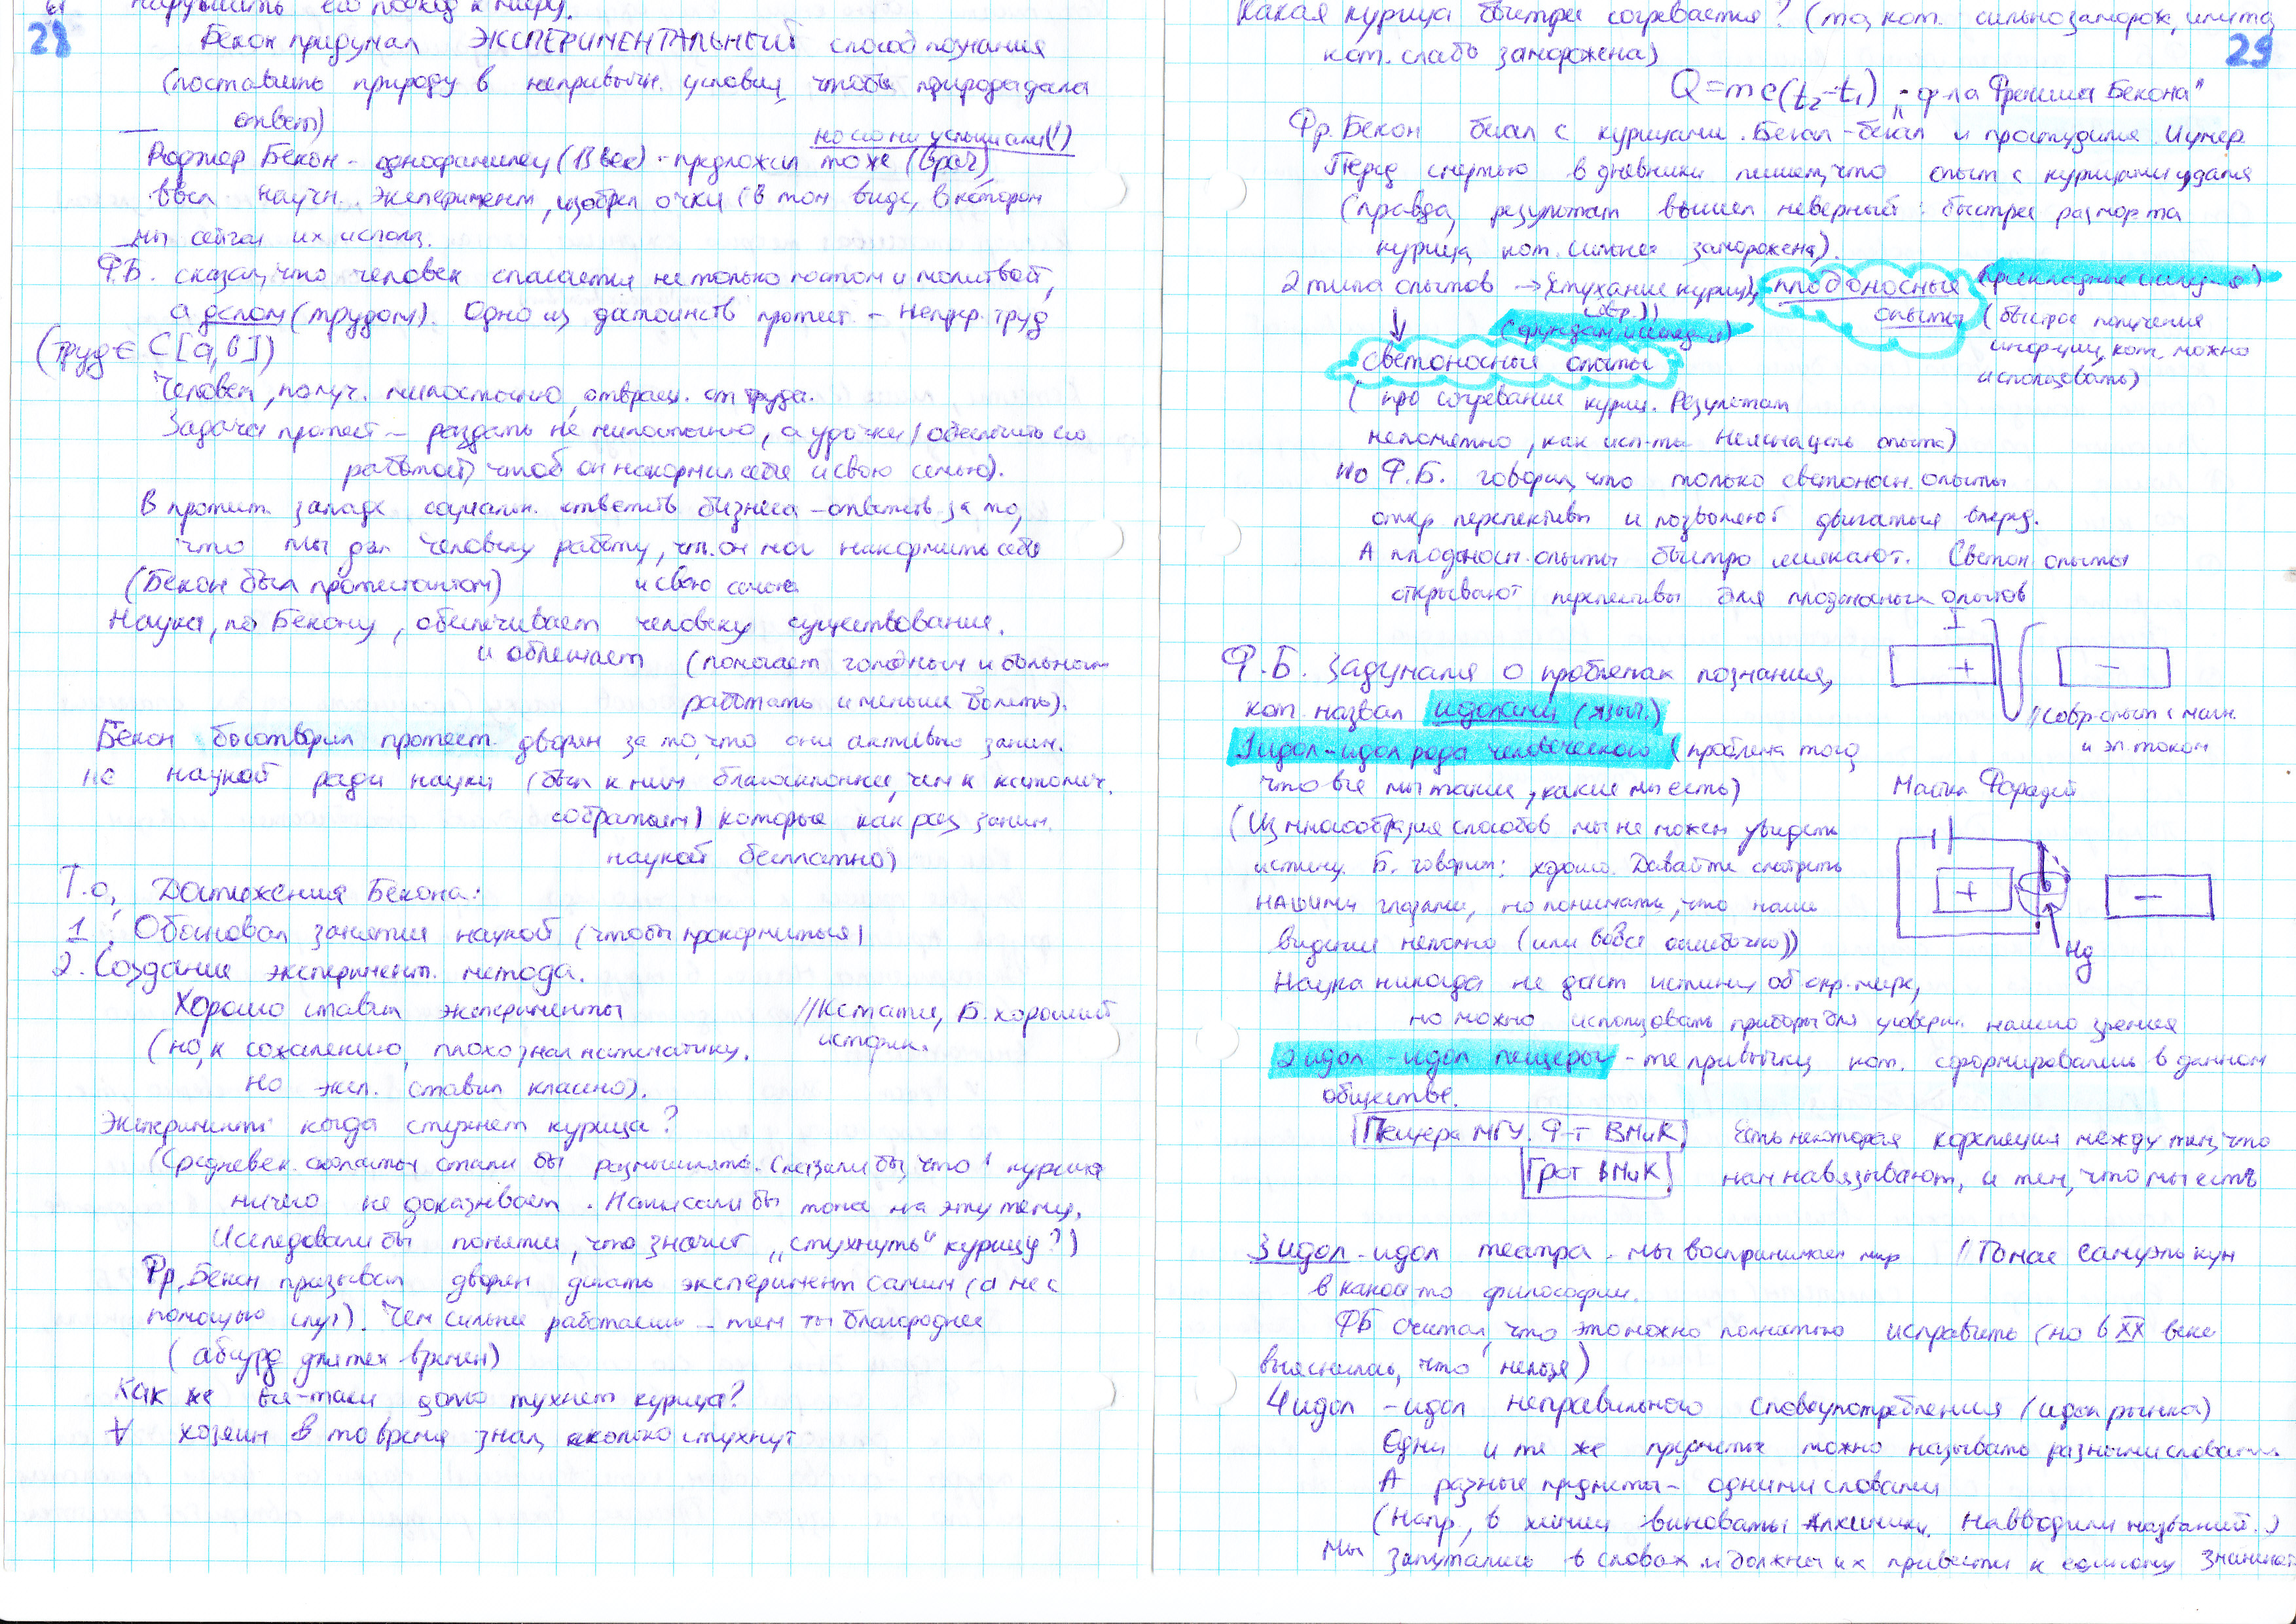 28
нарушить его подход к миру.
Бекон придумал ЭКСПЕРИМЕНТАЛЬНЫЙ способ познания
(поставить природу в непривычн. условия, чтобы природа дала
ответ)
но его не услышали(!)
Роджер Бекон - однофамилец (13 век) - предложил тоже (врач)
ввёл научн. эксперимент, изобрел очки (в том виде, в котором
мы сейчас их использ.
Ф.Б. сказал, что человек спасается не только постом и молитвой,
а делом (трудом). Одно из достоинств протест - непрер. труд
(труд ∈ C[a,b])
Человек, получ. милостыню, отвращ. от труда.
Задача протест - раздать не милостыню, а удочки (обеспечить его
работой, чтоб он накормил себя и свою семью).
В протест. западе социальн. ответств бизнеса - ответств. за то,
что мы дал человеку работу, чт. он мог накормить себя
(Бекон был протестантом) и свою семью
Наука, по Бекону, обеспечивает человеку существование.
и облегчает (помогает голодным и больным
работать и меньше болеть).
Бекон боготворил протест. дворян за то, что они активно заним.
не наукой ради науки (был к ним благосклоннее, чем к католич.
собратьям) которые как раз заним.
наукой бесплатно)
Т.о, Достижения Бекона:
1. Обосновал занятия наукой (чтобы прокормиться)
2. Создание эксперимент. метода.
Хорошо ставил эксперименты //Кстати, Б. хороший
историк.
(но, к сожалению, плохо знал математику.
Но эксп. ставил классно).
Эксперимент: когда стухнет курица?
(Средневек. схоласты стали бы размышлять. Сказали бы, что курица
ничего не доказывает. Написали бы тома на эту тему.
Исследовали бы понятие, что значит „стухнуть" курицу?)
Фр. Бекон призывал дворян делать эксперимент самим (а не с
помощью слуг). Чем сильнее работаешь - тем ты благороднее
(абсурд для тех времен)
Как же всё-таки долго тухнет курица?
∀ хозяин в то время знал, сколько стухнут
29
Какая курица быстрее согревается? (та, кот. сильно заморож, или та,
кот. слабо заморожена)
Q=mc(t₂-t₁) - „ф-ла Френсиса Бекона"
Фр. Бекон бегал с курицами. Бегал-бегал и простудился. И умер
Перед смертью в дневнике пишет, что опыт с курицами удался
(правда, результат вышел неверный: быстрее размор та
курица, кот. сильнее заморожена).
2 типа опытов → (стухание куриц), плодоносные (прикладные исслед-я)
опыты (быстрое получения
информации, кот. можно
использовать)
(фундам. исслед-я)
светоносные опыты
( про согревание куриц. Результат
непонятно, как исп-ть. Неясна цель опыта)
Но Ф.Б. говорил, что только светоносн. опыты
откр. перспективы и позволяют двигаться вперед.
А плодоносн. опыты быстро иссякают. Светон. опыты
открывают перспективы для плодоносных опытов
Ф.Б. задумался о проблемах познания,
кот. назвал идолами (языч.)
I
+ -
// Совр. опыт с магн.
и эл. током
1 идол - идол рода человеческого (проблема того,
что все мы такие, какие мы есть)
Майкл Фарадей
(Из многообразия способов мы не можем увидеть
истину. Б. говорит: хорошо. Давайте смотреть
НАШИМИ глазами, но понимать, что наше
видение неполно (или вовсе ошибочно))
+ -
Hg
Наука никогда не даст истины об окр. мире,
но можно использовать приборы для усоверш. нашего зрения
2 идол - идол пещеры - те привычки, кот. сформировались в данном
обществе.
Пещера МГУ. Ф-т ВМиК
Грот ВМиК
Есть некоторая корреляция между тем, что
нам навязывают, и тем, что мы есть
3 идол - идол театра. мы воспринимаем мир // Томас Самуэль Кун
в какой-то философии.
ФБ считал, что это можно полностью исправить (но в XX веке
выяснилось, что нельзя)
4 идол - идол неправильного словоупотребления (идол рынка)
Одни и те же предметы можно называть разными словами.
А разные предметы - одними словами
(Напр, в химии виноваты алхимики. Навводили названий.)
Мы запутались в словах и должны их привести к единому значению